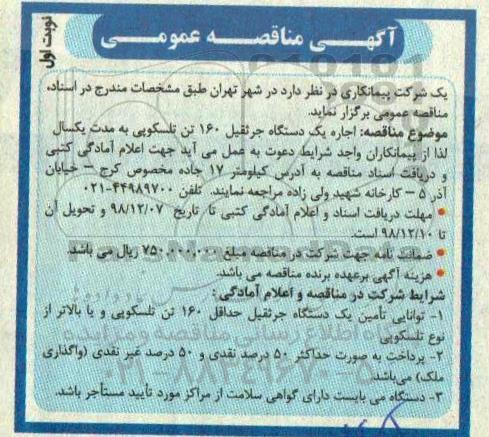 آگهـــی مناقصـــه عمومـــی
نوبت اول
یک شرکت پیمانکاری در نظر دارد در شهر تهران طبق مشخصات مندرج در اسناد،
مناقصه عمومی برگزار نماید.
موضوع مناقصه: اجاره یک دستگاه جرثقیل ۱۶۰ تن تلسکوپی به مدت یکسال
لذا از پیمانکاران واجد شرایط دعوت به عمل می آید جهت اعلام آمادگی کتبی
و دریافت اسناد مناقصه به آدرس کیلومتر ۱۷ جاده مخصوص کرج – خیابان
آذر ۵ – کارخانه شهید ولی زاده مراجعه نمایند. تلفن ۴۴۹۸۹۷۰۰-۰۲۱
• مهلت دریافت اسناد و اعلام آمادگی کتبی تا تاریخ ۹۸/۱۲/۰۷ و تحویل آن
تا ۹۸/۱۲/۱۰ است.
• ضمانت نامه جهت شرکت در مناقصه مبلغ ۷۵۰.۰۰۰.۰۰۰ ریال می باشد.
• هزینه آگهی برعهده برنده مناقصه می باشد.
شرایط شرکت در مناقصه و اعلام آمادگی :
۱- توانایی تأمین یک دستگاه جرثقیل حداقل ۱۶۰ تن تلسکوپی و یا بالاتر از
نوع تلسکوپی
۲- پرداخت به صورت حداکثر ۵۰ درصد نقدی و ۵۰ درصد غیر نقدی (واگذاری
ملک) می‌باشد.
۳- دستگاه می بایست دارای گواهی سلامت از مراکز مورد تأیید مستأجر باشد.
ParsNamadData
پایگاه اطلاع رسانی مناقصه و مزایده
۰۲۱-۸۸۳۴۹۶۷۰-۵